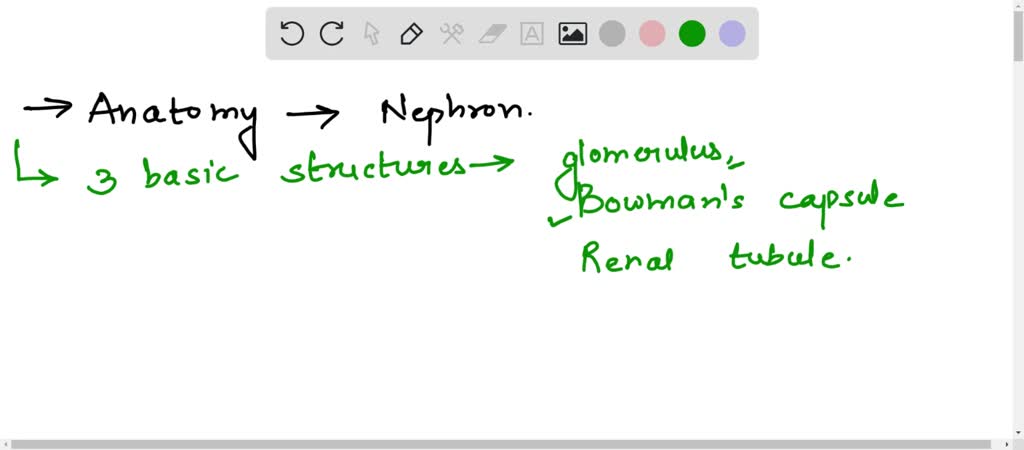 → Anatomy → Nephron.
↳ 3 basic structures → glomerulus,
Bowman's capsule
Renal tubule.